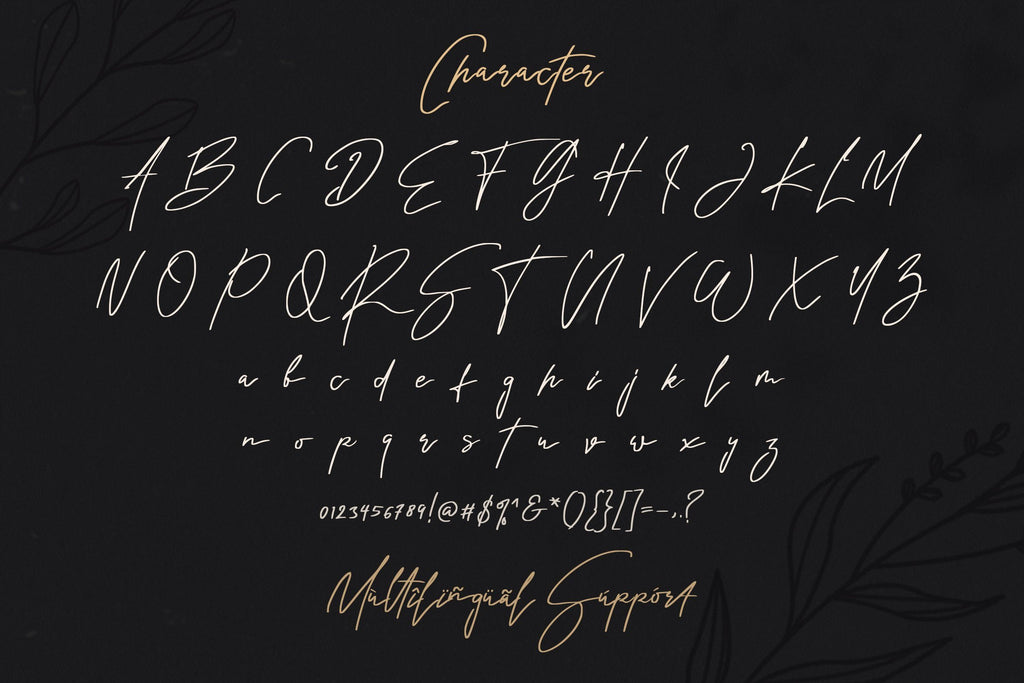 Character
A B C D E F G H I J K L M
N O P Q R S T U V W X Y Z
a b c d e f g h i j k l m
n o p q r s t u v w x y z
0123456789!@#$%^&*(){}[]=-,.?
Mùltîlïñgüãl Súppórt